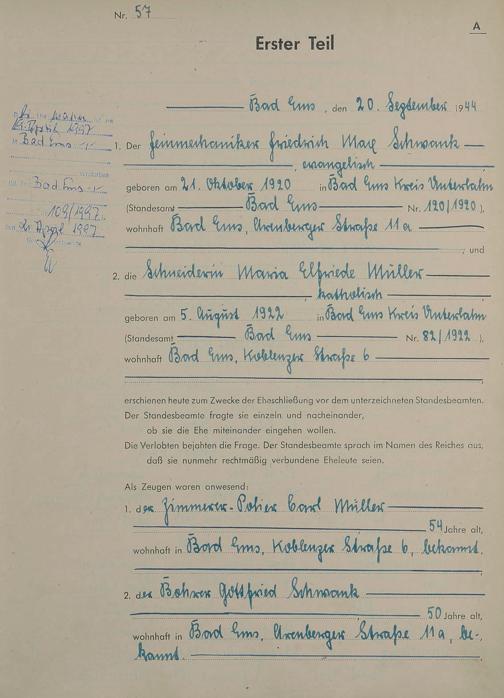 Nr. 57
A
Erster Teil
Bad Ems, den 20. September 1944
1. Der Feinmechaniker Friedrich Max Schwank
, evangelisch
geboren am 21. Oktober 1920 in Bad Ems Kreis Unterlahn
(Standesamt Bad Ems Nr. 120/1920),
wohnhaft Bad Ems, Arenberger Straße 11a
, und
2. die Schneiderin Maria Elfriede Müller
, katholisch
geboren am 5. August 1922 in Bad Ems Kreis Unterlahn
(Standesamt Bad Ems Nr. 82/1922),
wohnhaft Bad Ems, Koblenzer Straße 6
erschienen heute zum Zwecke der Eheschließung vor dem unterzeichneten Standesbeamten.
Der Standesbeamte fragte sie einzeln und nacheinander,
ob sie die Ehe miteinander eingehen wollen.
Die Verlobten bejahten die Frage. Der Standesbeamte sprach im Namen des Reiches aus,
daß sie nunmehr rechtmäßig verbundene Eheleute seien.
Als Zeugen waren anwesend:
1. der Zimmerer-Polier Carl Müller
54 Jahre alt,
wohnhaft in Bad Ems, Koblenzer Straße 6, bekannt.
2. der Bohrer Gottfried Schwank
50 Jahre alt,
wohnhaft in Bad Ems, Arenberger Straße 11a, be-
kannt.
1997
Bad Ems
Bad Ems
109/1997
1997